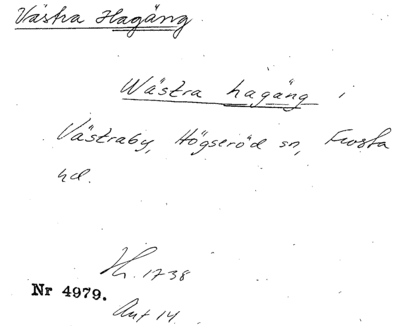 Västra Hagäng
Wästra hagäng i
Västraby, Högseröd sn, Frosta
hd.
Th. 1738
Nr 4979.
Ant 14.